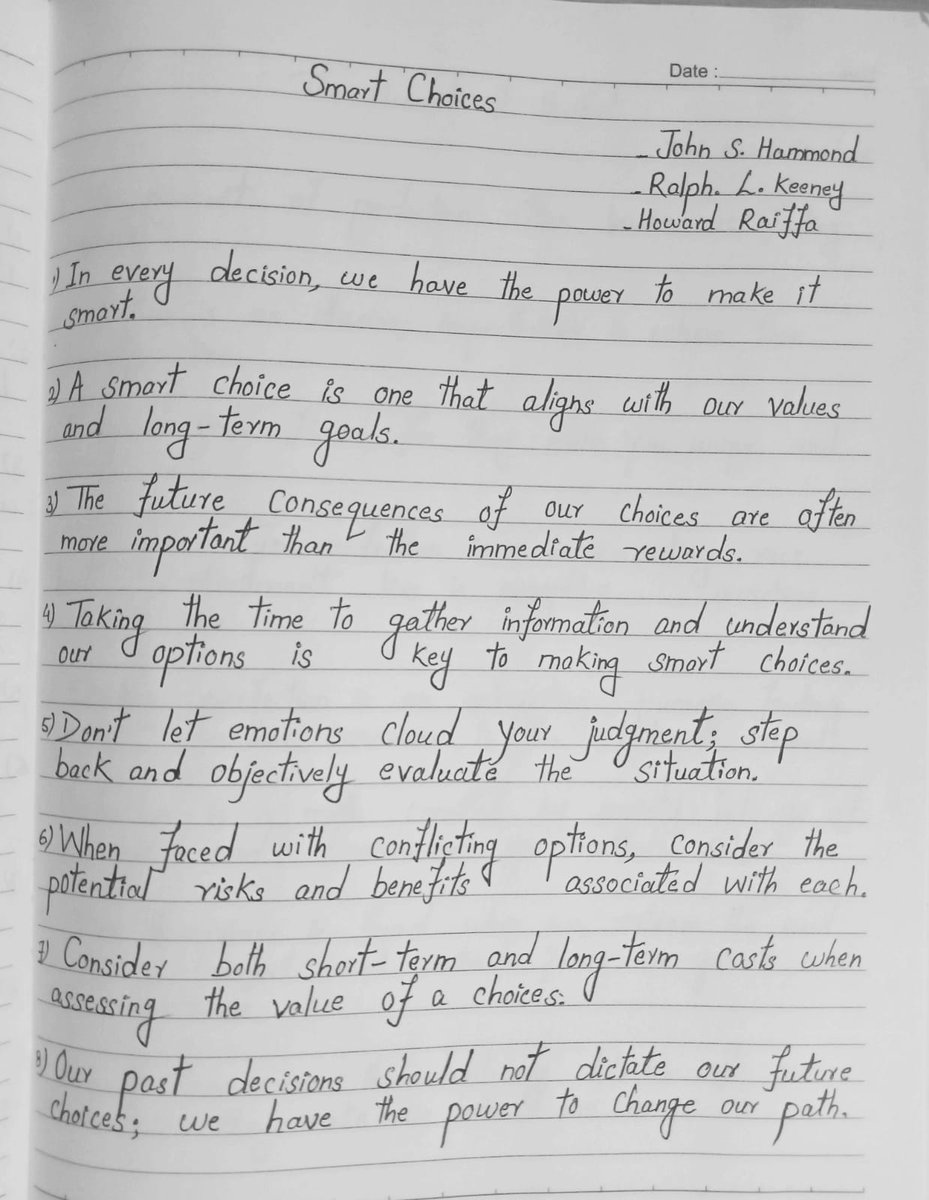 Date :
Smart Choices
- John S. Hammond
- Ralph. L. Keeney
- Howard Raiffa
1) In every decision, we have the power to make it
smart.
2) A smart choice is one that aligns with our values
and long-term goals.
3) The future consequences of our choices are often
more important than the immediate rewards.
4) Taking the time to gather information and understand
our options is key to making smart choices.
5) Don't let emotions cloud your judgment; step
back and objectively evaluate the situation.
6) When faced with conflicting options, consider the
potential risks and benefits associated with each.
7) Consider both short-term and long-term costs when
assessing the value of a choices.
8) Our past decisions should not dictate our future
choices; we have the power to change our path.